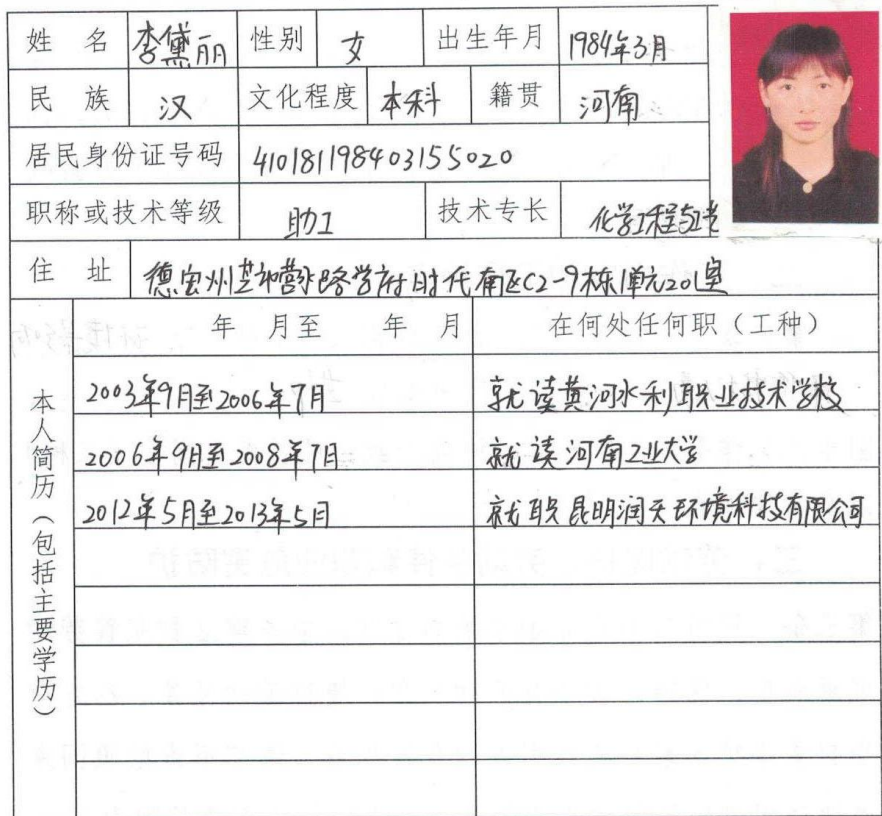 姓 名 李黛丽 性别 女 出生年月 1984年3月
民 族 汉 文化程度 本科 籍贯 河南
居民身份证号码 410181198403155020
职称或技术等级 助工 技术专长 化学工程与工艺
住 址 路学府时代南区C2-9栋1单元201室
年 月至 年 月 在何处任何职（工种）
本人简历（包括主要学历）
2003年9月至2006年7月 就读黄河水利职业技术学校
2006年9月至2008年7月 就读河南工业大学
2012年5月至2013年5月 就职昆明润天环境科技有限公司